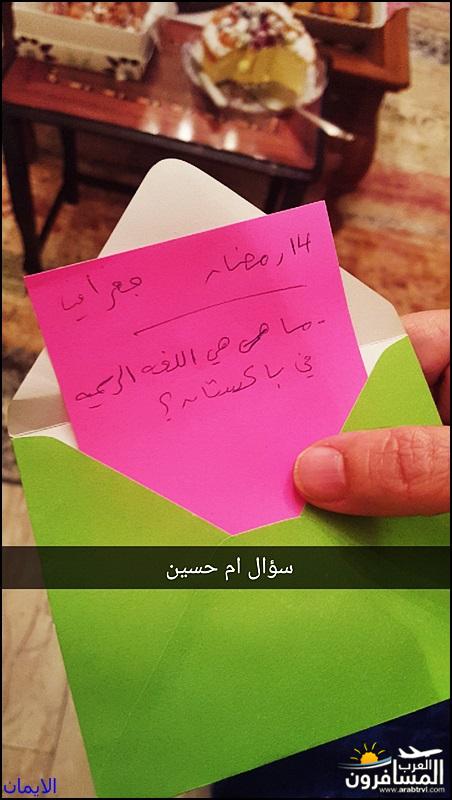 14 رمضان جغرافيا
- ما هي هي اللغه الرسميه
في باكستان؟
سؤال ام حسين
العرب
المسافرون
www.arabtrvl.com
الايمان